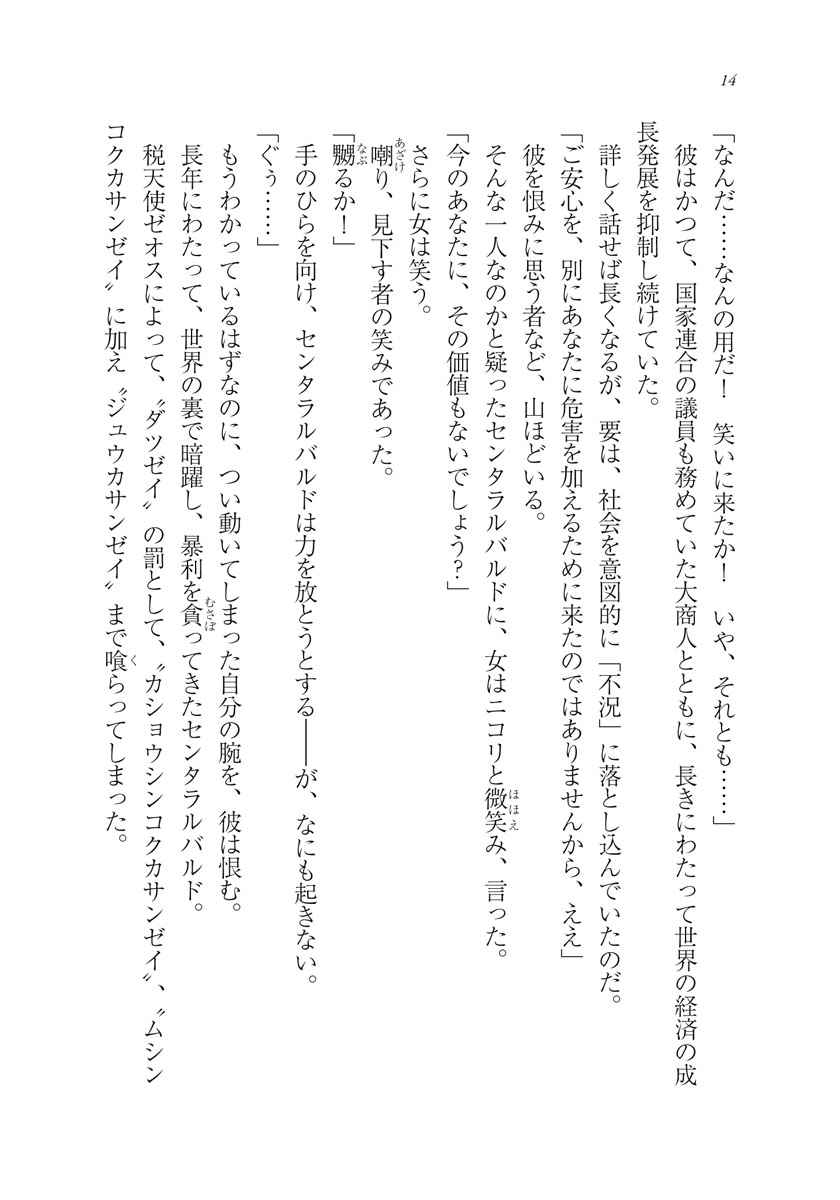 14
「なんだ……なんの用だ！　笑いに来たか！　いや、それとも……」
　彼はかつて、国家連合の議員も務めていた大商人とともに、長きにわたって世界の経済の成
長発展を抑制し続けていた。
　詳しく話せば長くなるが、要は、社会を意図的に「不況」に落とし込んでいたのだ。
「ご安心を、別にあなたに危害を加えるために来たのではありませんから、ええ」
　彼を恨みに思う者など、山ほどいる。
　そんな一人なのかと疑ったセンタラルバルドに、女はニコリと微笑み、言った。
「今のあなたに、その価値もないでしょう？」
　さらに女は笑う。
　嘲り、見下す者の笑みであった。
「嬲るか！」
　手のひらを向け、センタラルバルドは力を放とうとする――が、なにも起きない。
「ぐぅ……」
　もうわかっているはずなのに、つい動いてしまった自分の腕を、彼は恨む。
　長年にわたって、世界の裏で暗躍し、暴利を貪ってきたセンタラルバルド。
　税天使ゼオスによって、〝ダツゼイ〟の罰として、〝カショウシンコクカサンゼイ〟、〝ムシン
コクカサンゼイ〟に加え〝ジュウカサンゼイ〟まで喰らってしまった。